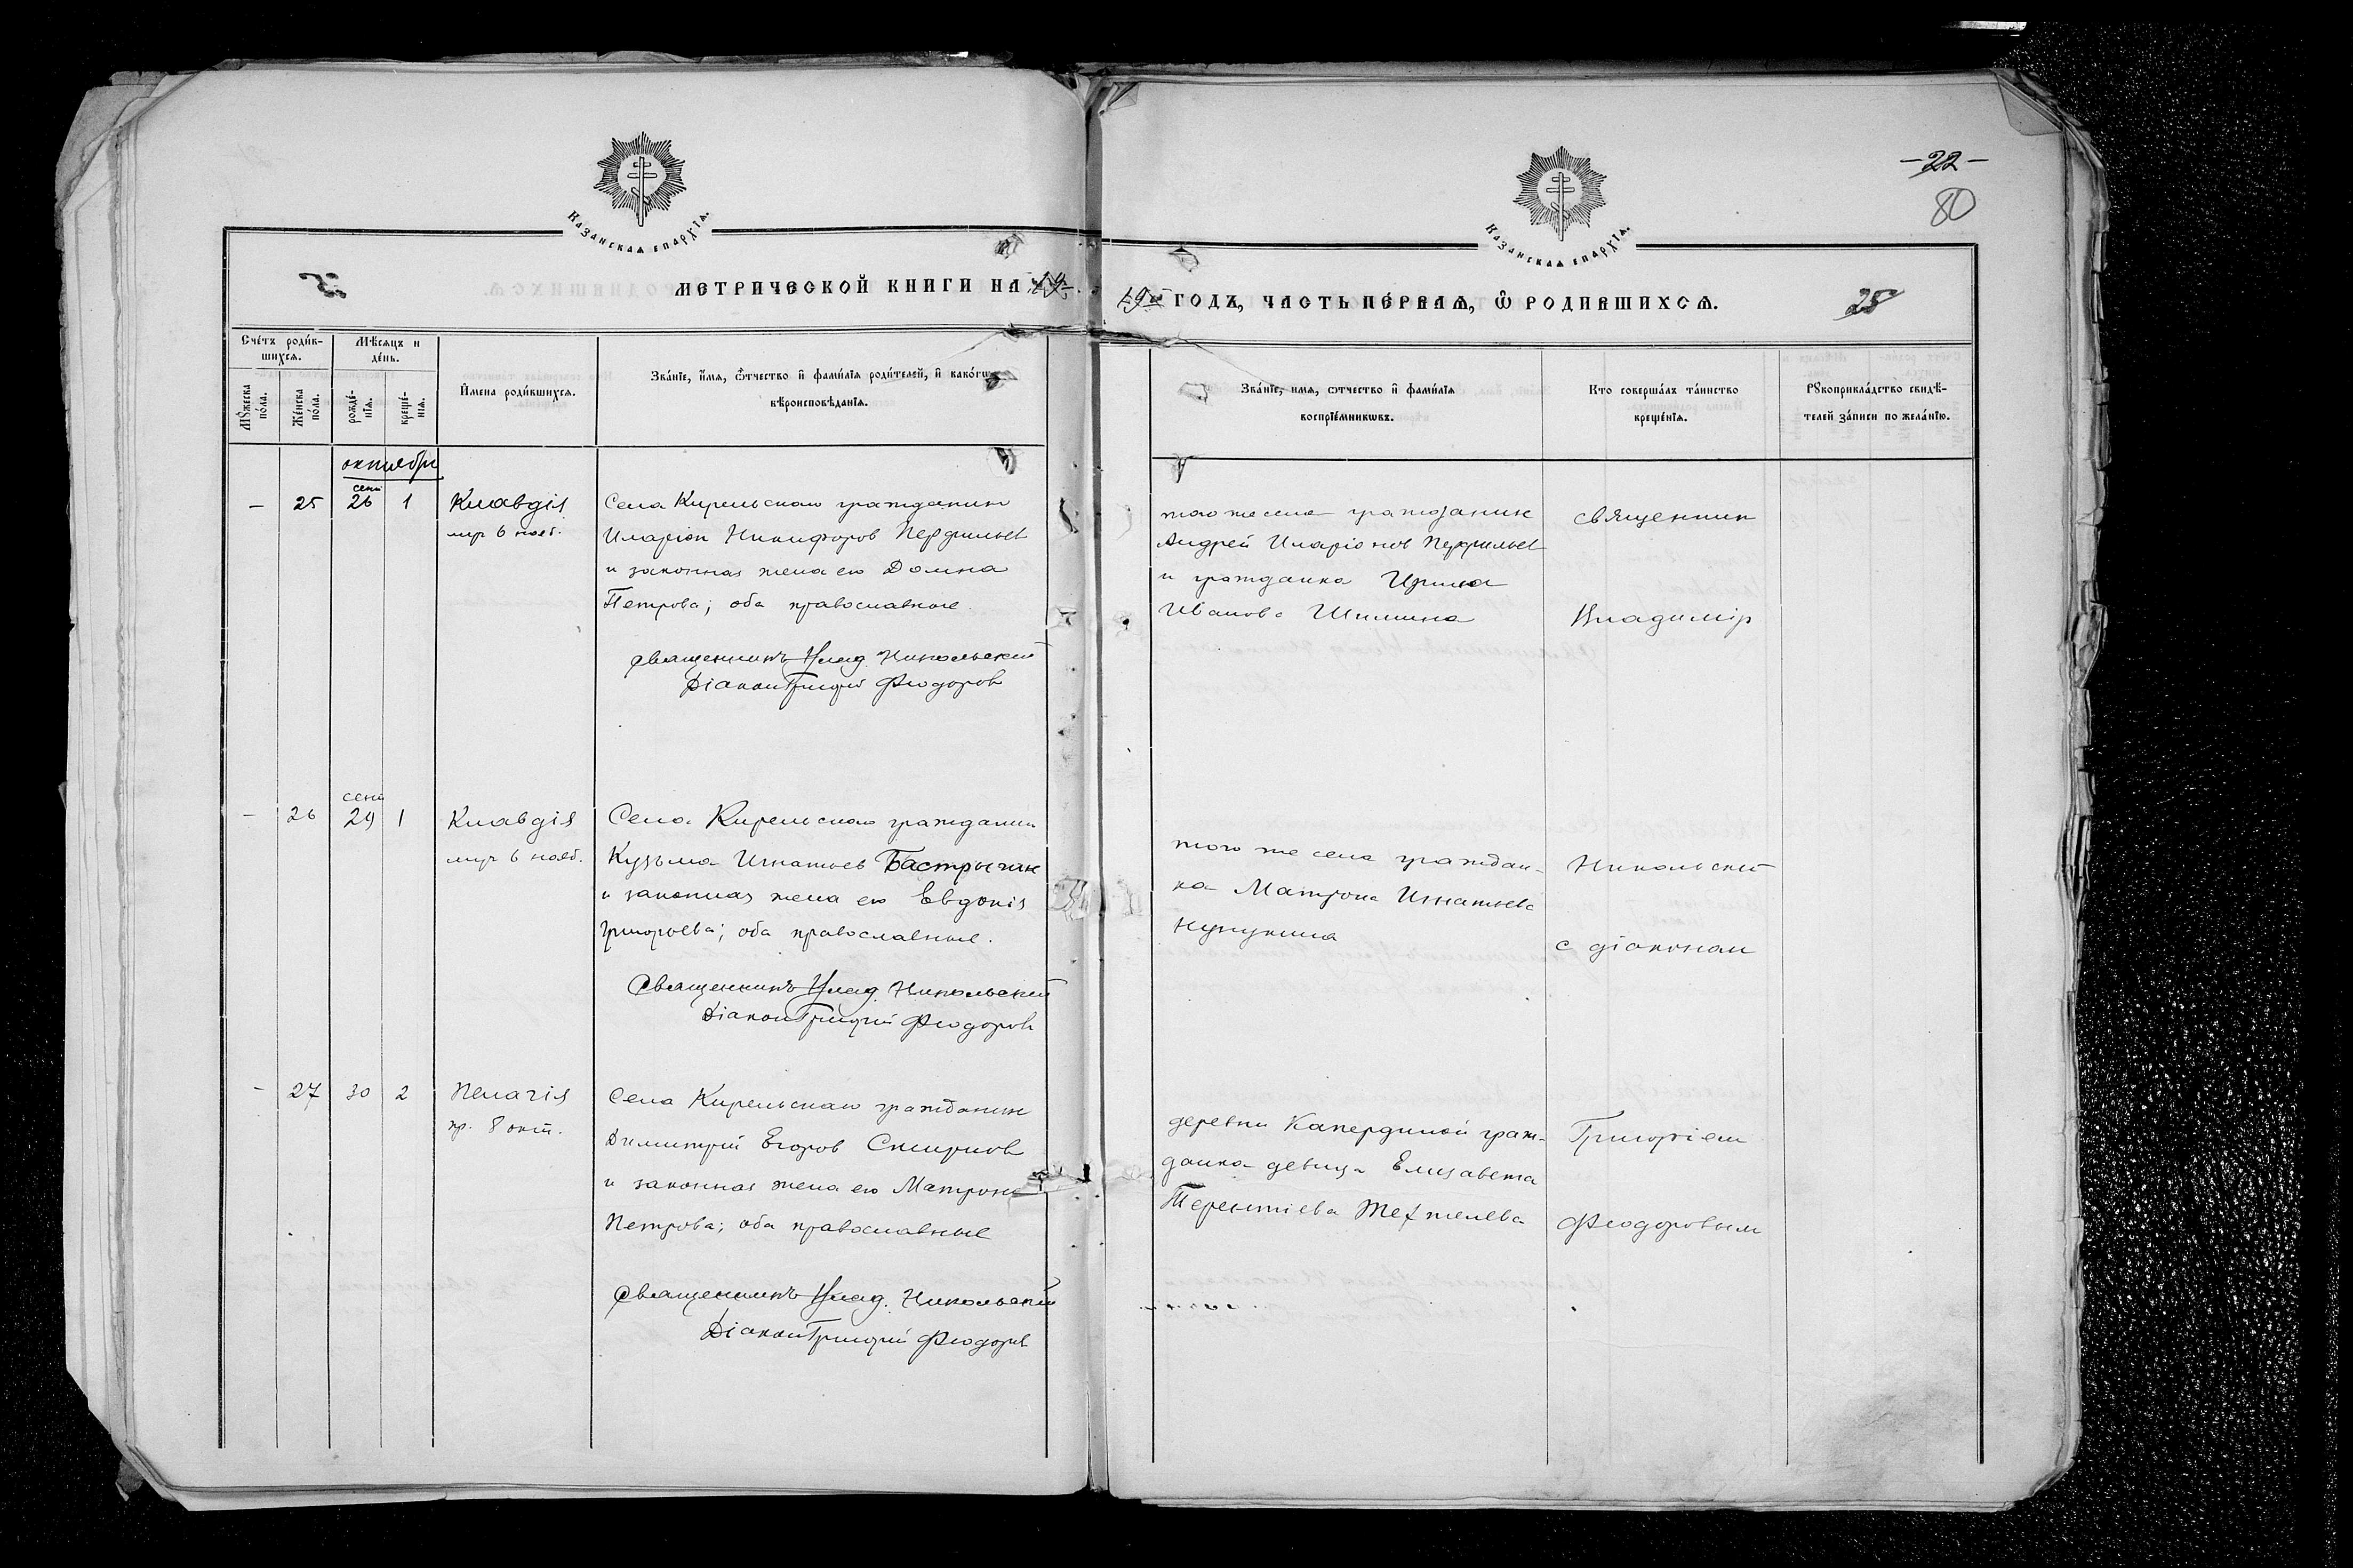 -22-
80
Казанская епархїѧ.
Казанская епархїѧ.
МЕТРИЧЕСКОЙ КНИГИ НА 19
19 ГОДЪ, ЧАСТЬ ПЕ́РВАѦ, Ѽ РОДИВШИХСѦ.
25
Счетъ роди́в-
шихсѧ.
Мѣсѧцъ и
де́нь.
Мꙋжеска
по́ла.
Же́нска
по́ла.
рожде́-
нїѧ.
креще́-
нїѧ.
Имена роди́вшихсѧ.
Зва́нїе, и́мѧ, ѻтчество и фами́лїѧ роди́телей, и како́гѡ
вѣроисповѣ́данїѧ.
Зва́нїе, имѧ, ѻтчество и фами́лїѧ
воспрїе́мникѡвъ.
Кто соверша́лъ та́инство
креще́нїѧ.
Рꙋкоприкла́дство свидѣ́-
телей за́писи по жела́нїю.
октября
сент
- 25 26 1 Клавдія
муч 6 нояб.
Села Кирельскаго гражданин
Иларіон Никифоров Перфильев
и законная жена его Домна
Петрова; оба православные.
Священникъ Влад. Никольский
Діакон Григорий Феодоров
того же села гражданин
Андрей Иларіонов Перфильев
и гражданка Ирина
Иванова Шишкина
священник
Владимір
сент
- 26 29 1 Клавдія
муч 6 нояб.
Села Кирельскаго гражданин
Кузьма Игнатьев
и законная жена его Евдокія
Григорьева; оба православные.
Священникъ Влад. Никольский
Діакон Григорий Феодоров
того же села граждан-
ка Матрона Игнатьева
Никольский
с діаконом
- 27 30 2 Пелагія
пр. 8 окт.
Села Кирельскаго гражданин
Димитрий Егоров Смирнов
и законная жена его Матрона
Петрова; оба православные
Священникъ Влад. Никольский
Діакон Григорий Феодоров
деревни граж-
данка девица Елизавета
Терентіева
Григоріем
Феодоровым